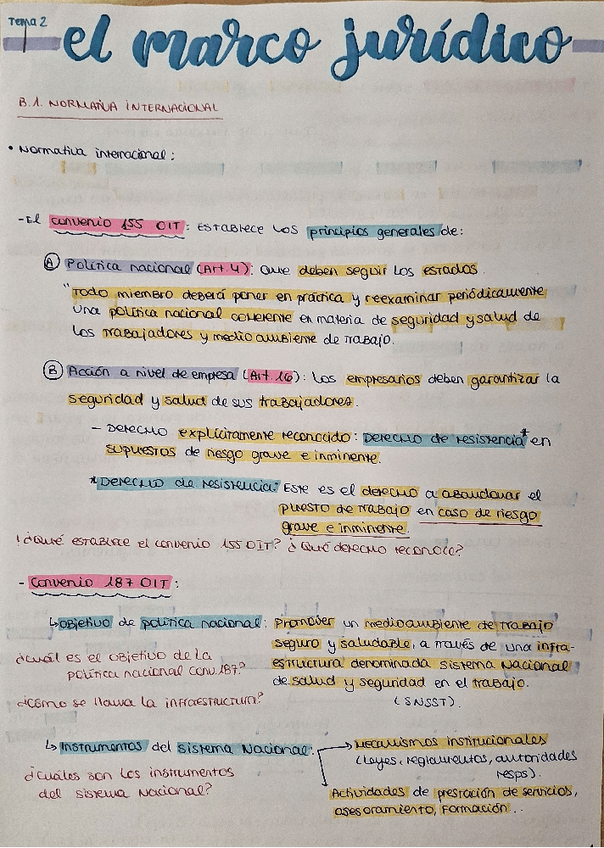 Tema 2
el marco jurídico
B.1. NORMATIVA INTERNACIONAL
• Normativa internacional:
- El convenio 155 OIT: ESTABLECE LOS principios generales de:
Ⓐ Política nacional (Art. 4): que deben seguir los estados.
"Todo miembro deberá poner en práctica y reexaminar periódicamente
una política nacional coherente en materia de seguridad y salud de
los trabajadores y medio ambiente de trabajo.
Ⓑ Acción a nivel de empresa (Art 16): Los empresarios deben garantizar la
seguridad y salud de sus trabajadores.
- Derecho explícitamente reconocido: Derecho de resistencia* en
supuestos de riesgo grave e inminente.
*Derecho de resistencia: Este es el derecho a abandonar el
puesto de trabajo en caso de riesgo
grave e inminente.
¿Qué establece el convenio 155 OIT? ¿Qué derecho reconoce?
- Convenio 187 OIT:
↳ objetivo de política nacional: Promover un medioambiente de trabajo
seguro y saludable, a través de una infra-
estructura denominada sistema Nacional
de salud y seguridad en el trabajo.
(SNSST).
¿cuál es el objetivo de la
política nacional conv.187?
¿Cómo se llama la infraestructura?
↳ Instrumentos del sistema Nacional:
→ Mecanismos institucionales
(leyes, reglamentos, autoridades
resps).
Actividades de prestación de servicios,
asesoramiento, formación...
¿cuáles son los instrumentos
del sistema Nacional?